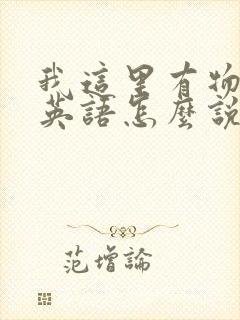 我這里有物
英語怎麼說
范增論